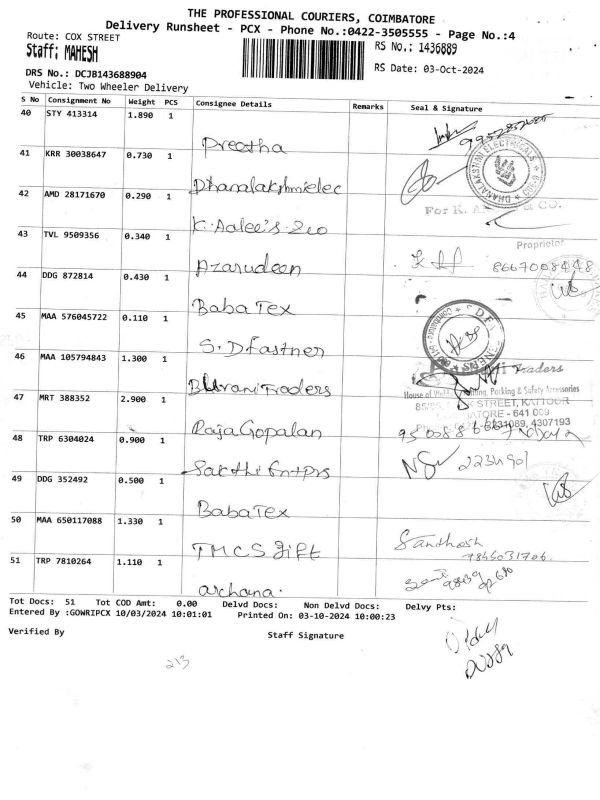 THE PROFESSIONAL COURIERS, COIMBATORE
Delivery Runsheet - PCX - Phone No.:0422-3505555 - Page No.:4
Route: COX STREET
Staff: MAHESH
RS No.: 1436889
RS Date: 03-Oct-2024
DRS No.: DCJB143688904
Vehicle: Two Wheeler Delivery
S No Consignment No Weight PCS Consignee Details Remarks Seal & Signature
40 STY 413314 1.890 1 Preetha
41 KRR 30038647 0.730 1 Dhanalakshmielec
DHANALAKSHMI ELECTRICALS
42 AMD 28171670 0.290 1 K. Aalee's
For K. & CO.
Proprietor
43 TVL 9509356 0.340 1 Azarudeen 8667008448
44 DDG 872814 0.430 1 Baba Tex
45 MAA 576045722 0.110 1 S. D Fastner
46 MAA 105794843 1.300 1 Bhvani Traders
Traders
House of Packing & Safety Accessories
STREET, KATTOOR
- 641 009
4307193
47 MRT 388352 2.900 1 RajaGopalan
48 TRP 6304024 0.900 1 Sakthi Entprs
49 DDG 352492 0.500 1 BabaTex
50 MAA 650117088 1.330 1 TMCS gift Santhosh
51 TRP 7810264 1.110 1 archana.
Tot Docs: 51 Tot COD Amt: 0.00 Delvd Docs: Non Delvd Docs: Delvy Pts:
Entered By :GOWRIPCX 10/03/2024 10:01:01 Printed On: 03-10-2024 10:00:23
Verified By Staff Signature
213